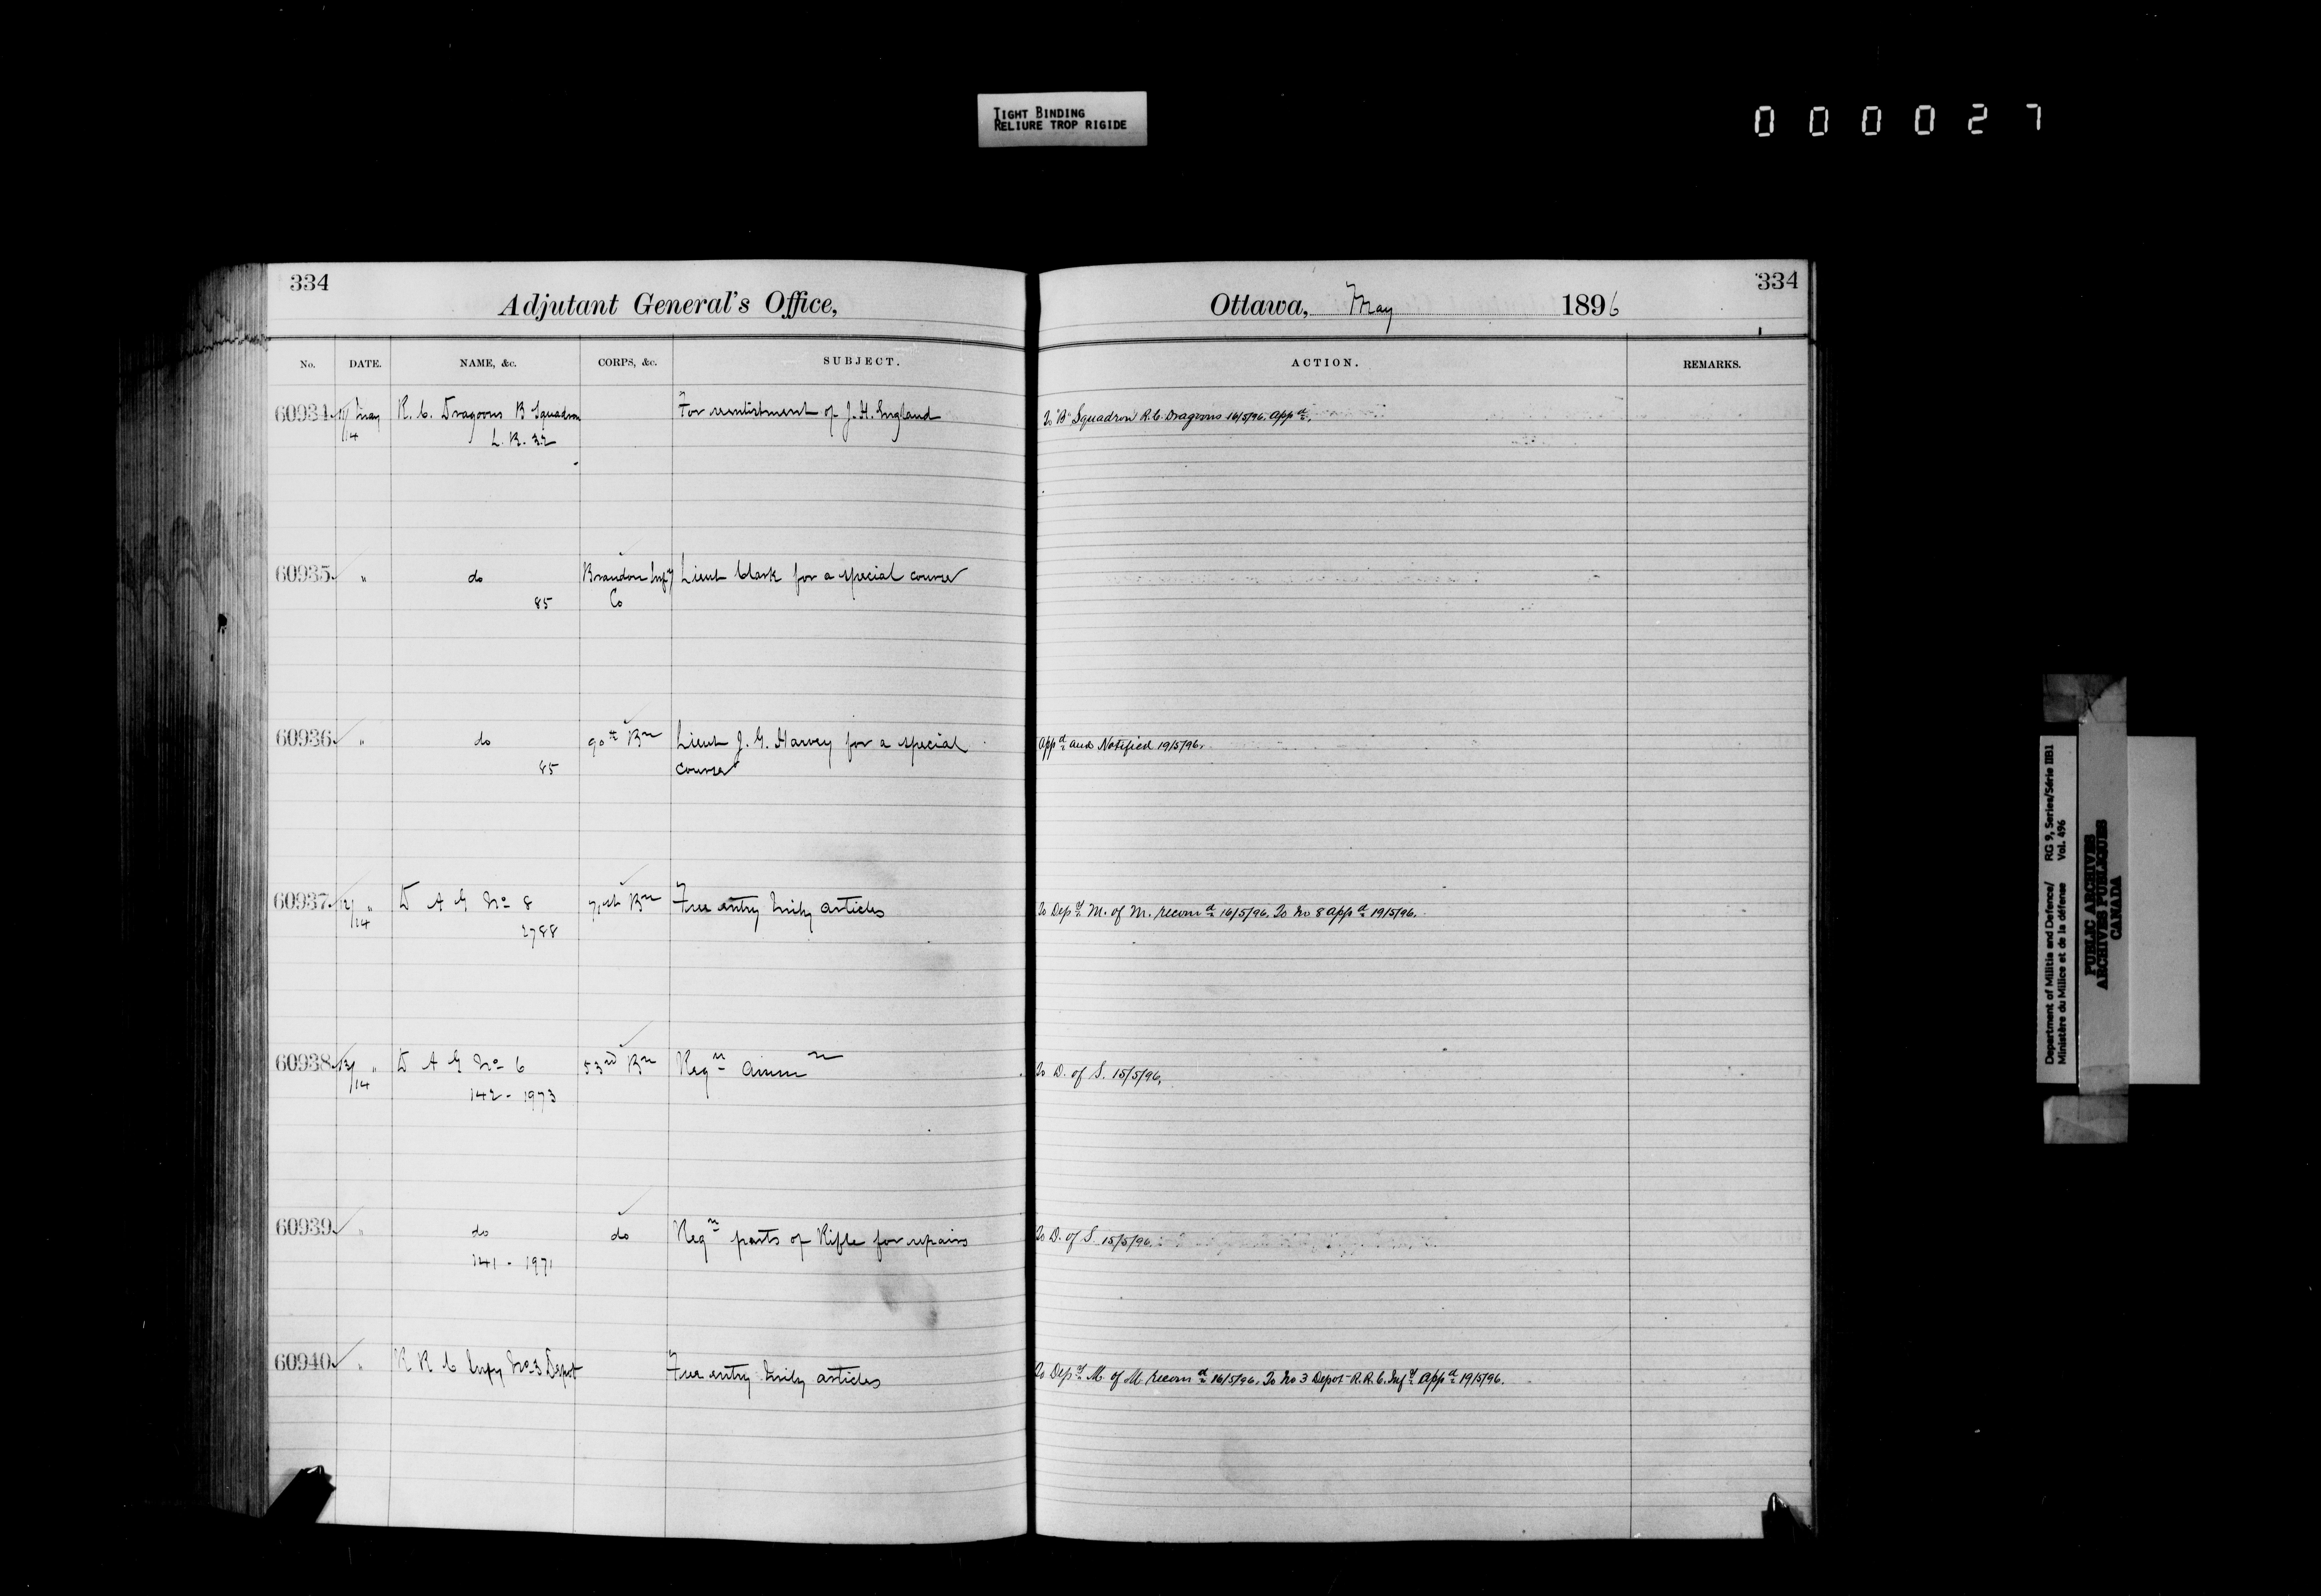 TIGHT BINDING
RELIURE TROP RIGIDE
000027
334
Adjutant General's Office,
No. DATE. NAME, &c. CORPS, &c. SUBJECT.
60934 May R. C. Dragoons B Squadron For reenlistment of J. H. England
14 L. R. 32
60935 " do Brandon Infy Lieut Clark for a special course
85 Co
60936 " do 90th Bn Lieut J. G. Harvey for a special
85 course
60937 12/ " D A G No 8 71st Bn Free entry Mily articles
14 2788
60938 13/ " D A G No 6 53rd Bn Reqn Ammn
14 142 - 1973
60939 " do do Reqn parts of Rifle for repairs
141 - 1971
60940 " R R C Infy No 3 Depot Free entry Mily articles
334
Ottawa, May 1896
ACTION. REMARKS.
To "B" Squadron R. C. Dragoons 16/5/96. Appd.
Appd and Notified 19/5/96.
To Depy M. of M. recomd 16/5/96. To No 8 appd 19/5/96.
To D. of S. 15/5/96.
To D. of S. 15/5/96.
To Depy M. of M. recomd 16/5/96. To No 3 Depot R. R. C. Infy Appd 19/5/96.
Department of Militia and Defence/ RG 9, Series/Série IIB1
Ministère du Milice et de la défense Vol. 496
PUBLIC ARCHIVES
ARCHIVES PUBLIQUES
CANADA